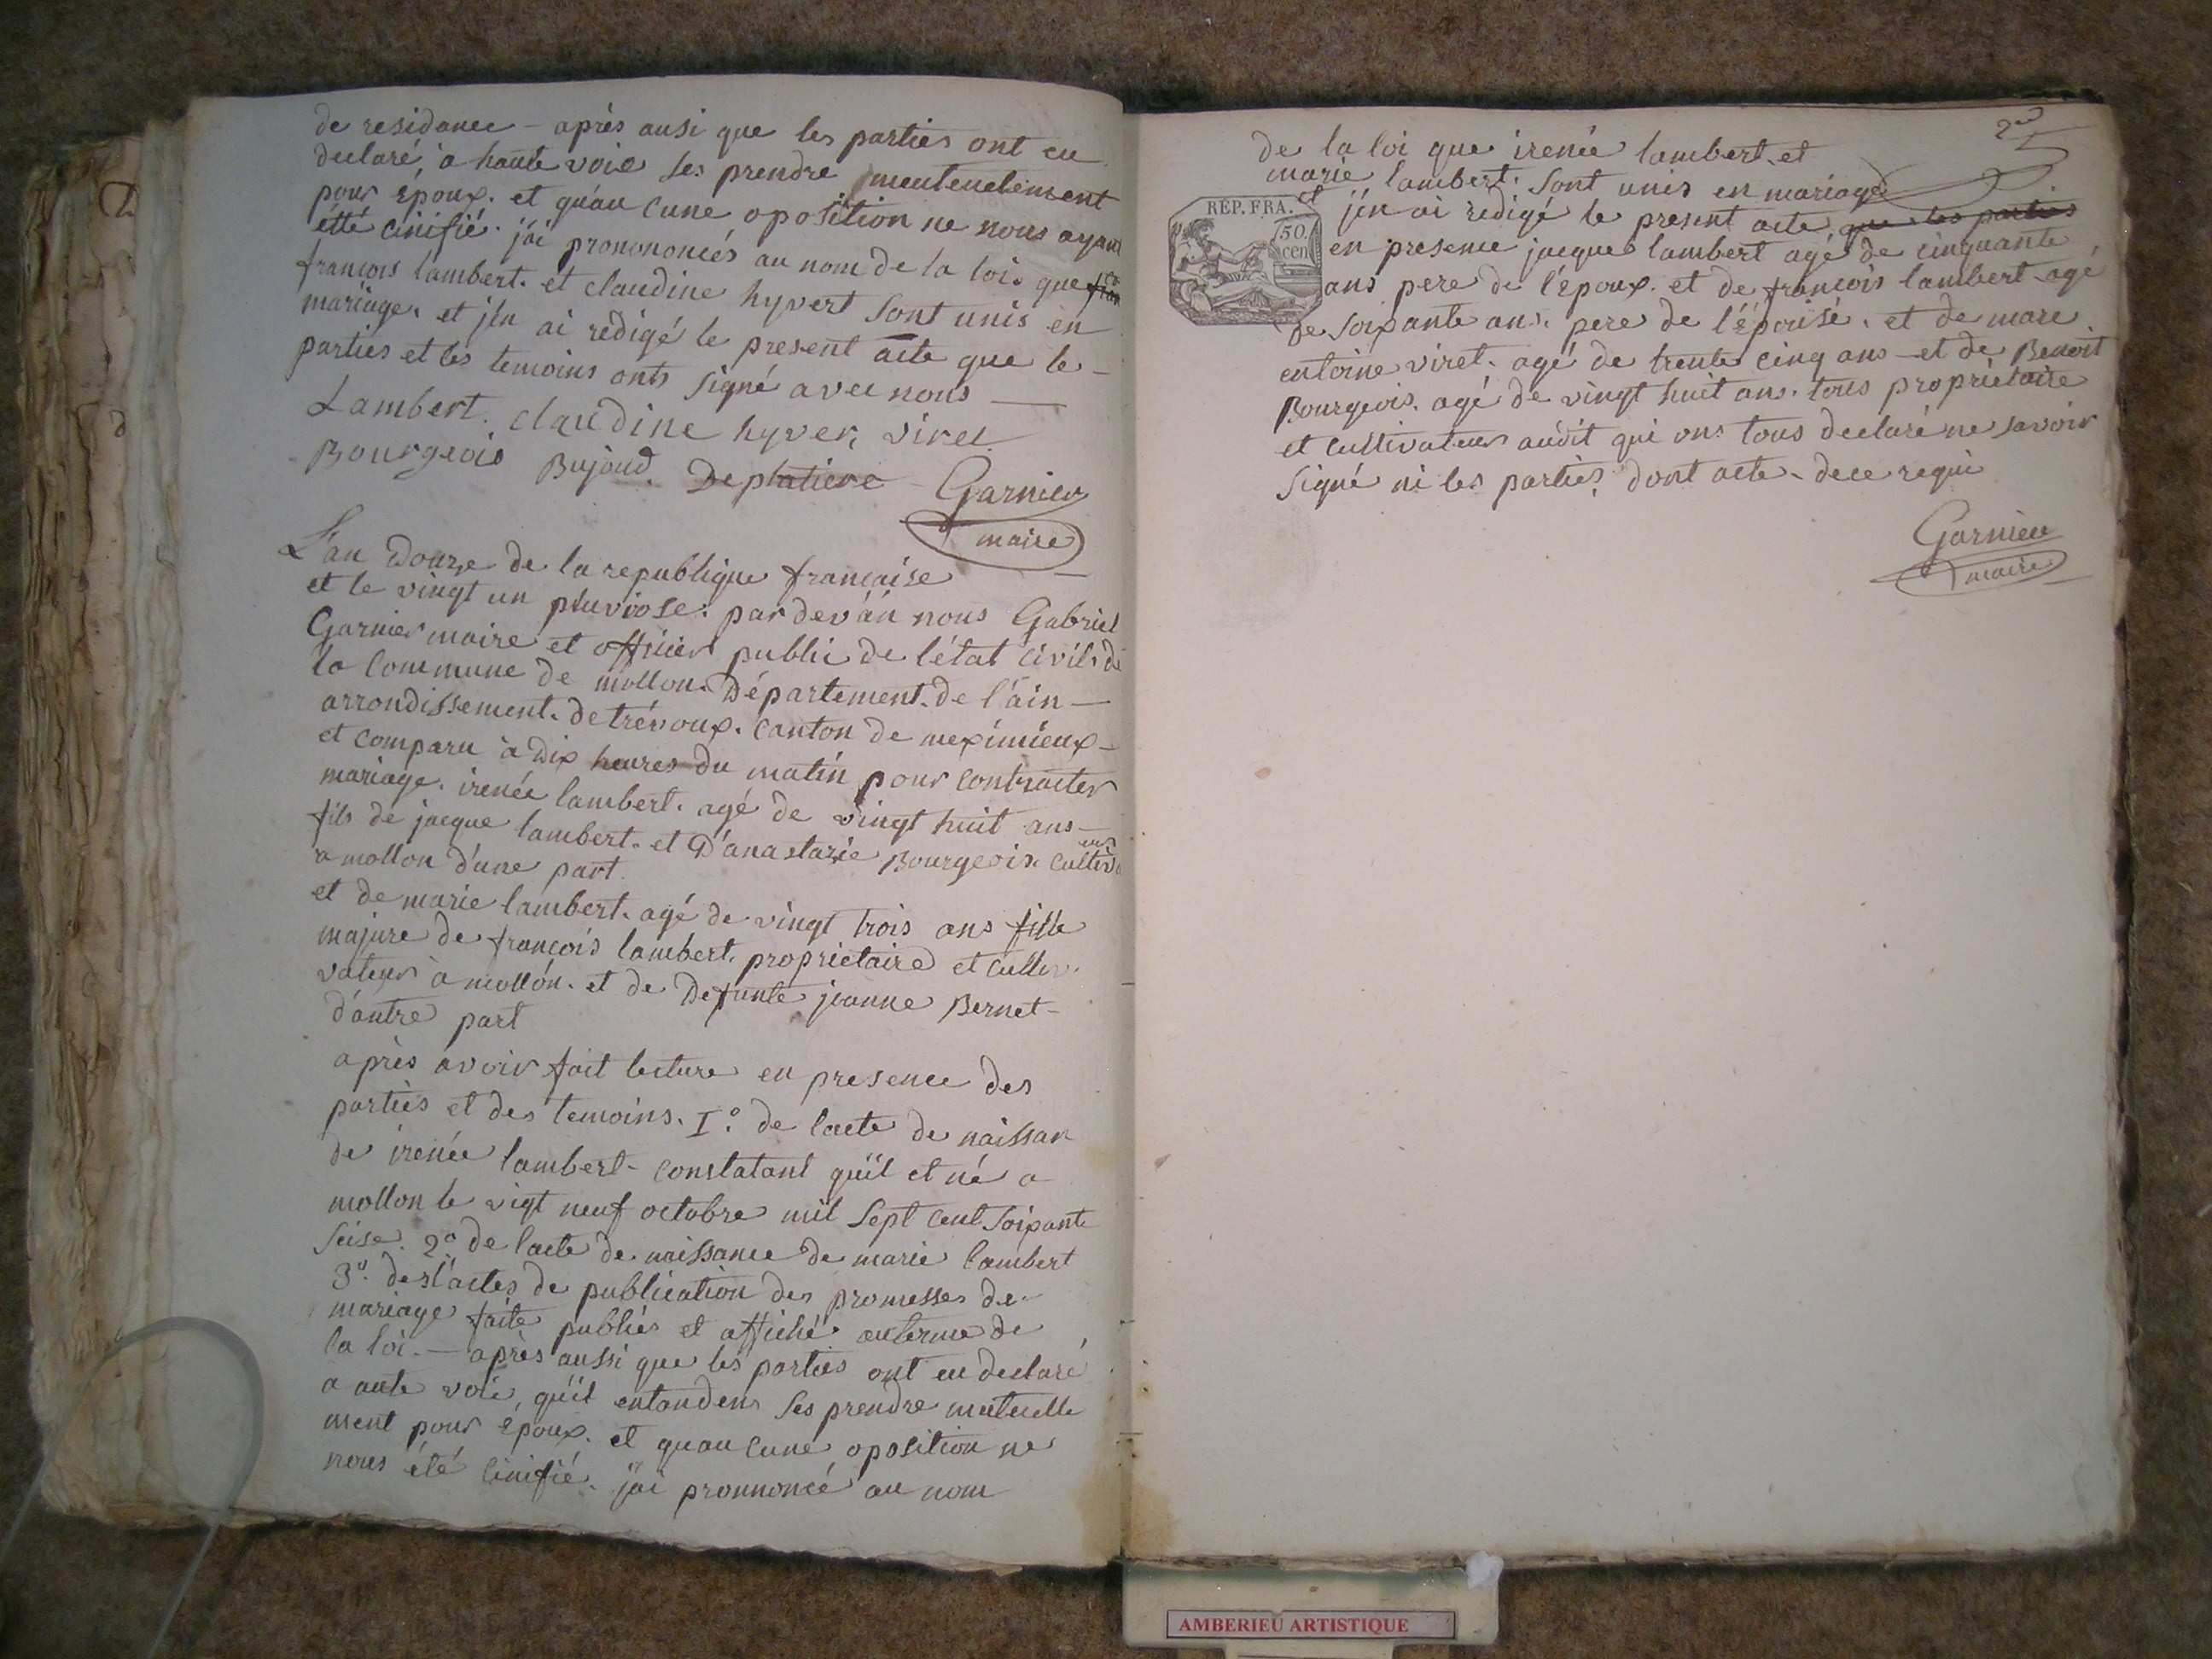 de residance - après ausi que les parties ont eu
declaré, a haute voie ses prendre meutuellement
pour époux. et qu'au cune oposition ne nous ayant
étté cinifié. j'ai pronononcés au nom de la loi. que
francois lambert. et claudine hyvert sont unis en
mariage. et j'en ai redigé le present acte que le-
parties et les temoins onts signé avec nous —
Lambert. claudine hyver, viret
Bourgeois Bujoud. Deplatiere Garnier
maire
L'an douze de la republique francaise
et le vingt un pluviose. pardeván nous Gabriel
Garnier maire et officier public de l'état civils de
la commune de mollon. Département de l'áin —
arrondissement. de trévoux. canton de meximieux-
et comparu à dix heures du matin pour contracter
mariage. irenée lambert. agé de vingt huit ans —
fils de jacque lambert. et d'anastazie Bourgeois. cultiva
eur
a mollon d'une part.
et de marie lambert. agé de vingt trois ans fille
majure de francois lambert. proprietaire et culti-
vateur à mollón. et de defunte jeanne Bernet-
d'autre part
après avoir fait lecture en presence des
parties et des temoins. 1º. de lacte de naissan
de irenée lambert- constatant qu'il et né a
mollon le vigt neuf octobre mil sept cent soixante
seise. 2º de lacte de naissance de marie lambert
3º. des l'actes de publication des promesses de-
mariage faite publiés et affiché auterme de
la loi. — après aussi que les parties ont eu declaré
a aute voie, qu'il entandens ses prendre mutuelle
ment pour époux. et quau cune oposition ne
nous été cinifié. j'ai pronnoncé au nom
2
5
de la loi que irenée lambert et
marie lambert. sont unis en mariage
et j'en ai redigé le present acte que les parties
REP. FRA.
50.
cen
en presence jacques lambert agé de cinquante
ans pere de l'époux. et de francois lambert agé
de soixante ans. pere de l'épouse. et de marc
entoine viret. agé de trente cinq ans — et de Benoit
Bourgeois. agé de vingt huit ans. tous proprietaire
et cultivateur audit qui ons tous declaré ne savoir
signé ni les parties, dont acte - dece requi
Garnier
maire
AMBERIEU ARTISTIQUE